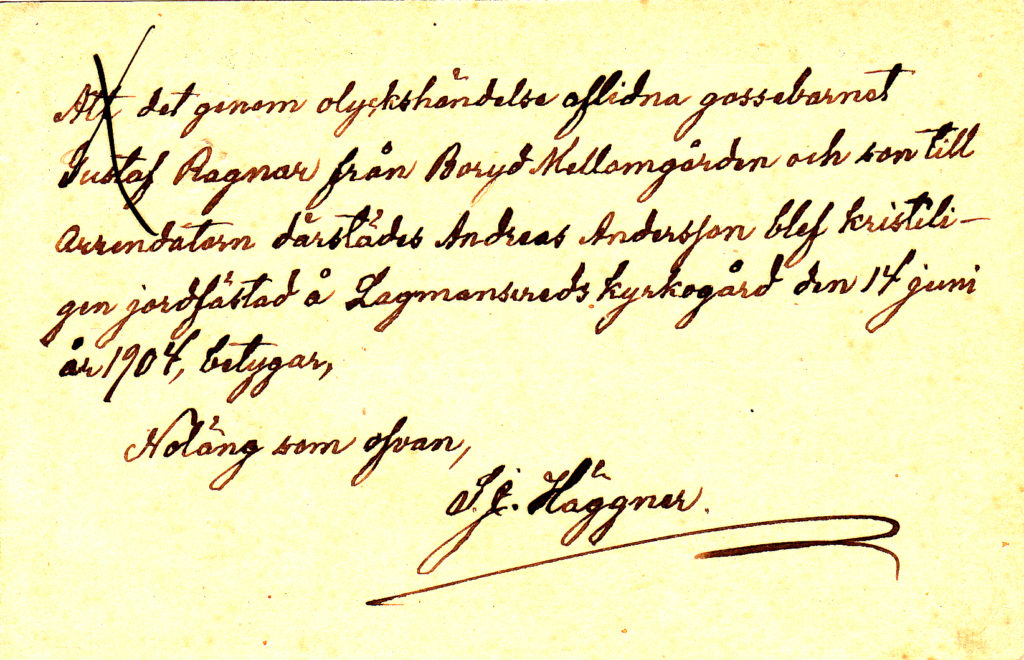 Att det genom olyckshändelse aflidna gossebarnet
Gustaf Ragnar från Boryd Mellomgården och son till
Arrendatorn därstädes Andreas Andersson blef kristeli-
gen jordfästad å Lagmansereds kyrkogård den 14 juni
år 1904, betygar,
Noläng som ofvan,
Häggner.